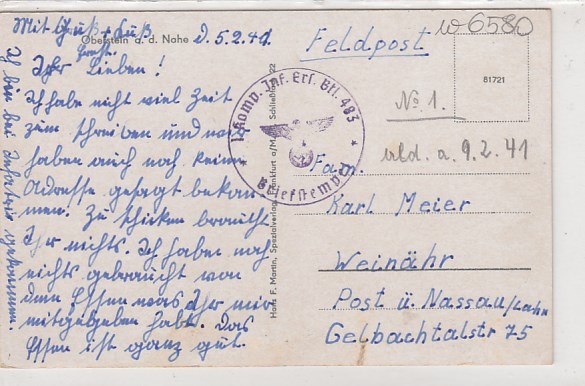 Mit Gruß + Kuß
Ernst.
Oberstein a. d. Nahe d. 5.2.41.
Ihr Lieben!
Ich habe nicht viel Zeit
zum schreiben und wir
haben auch noch keine
Adresse gesagt bekom
men. Zu schicken braucht
Ihr nichts. Ich habe noch
nichts gebraucht von
dem Essen was Ihr mir
mitgegeben habt. Das
Essen ist ganz gut.
Ich bin bei Infantrie gekommen.
Hans F. Martin, Spezialverlag, Frankfurt a/M., Schließfach 22
Feldpost
w 6580
81721
No 1.
1. Komp. Inf. Ers. Btl. 493
Briefstempel
eld. a. 9.2.41
Fam.
Karl Meier
Weinähr
Post ü. Nassau/Lahn
Gelbachtalstr 75